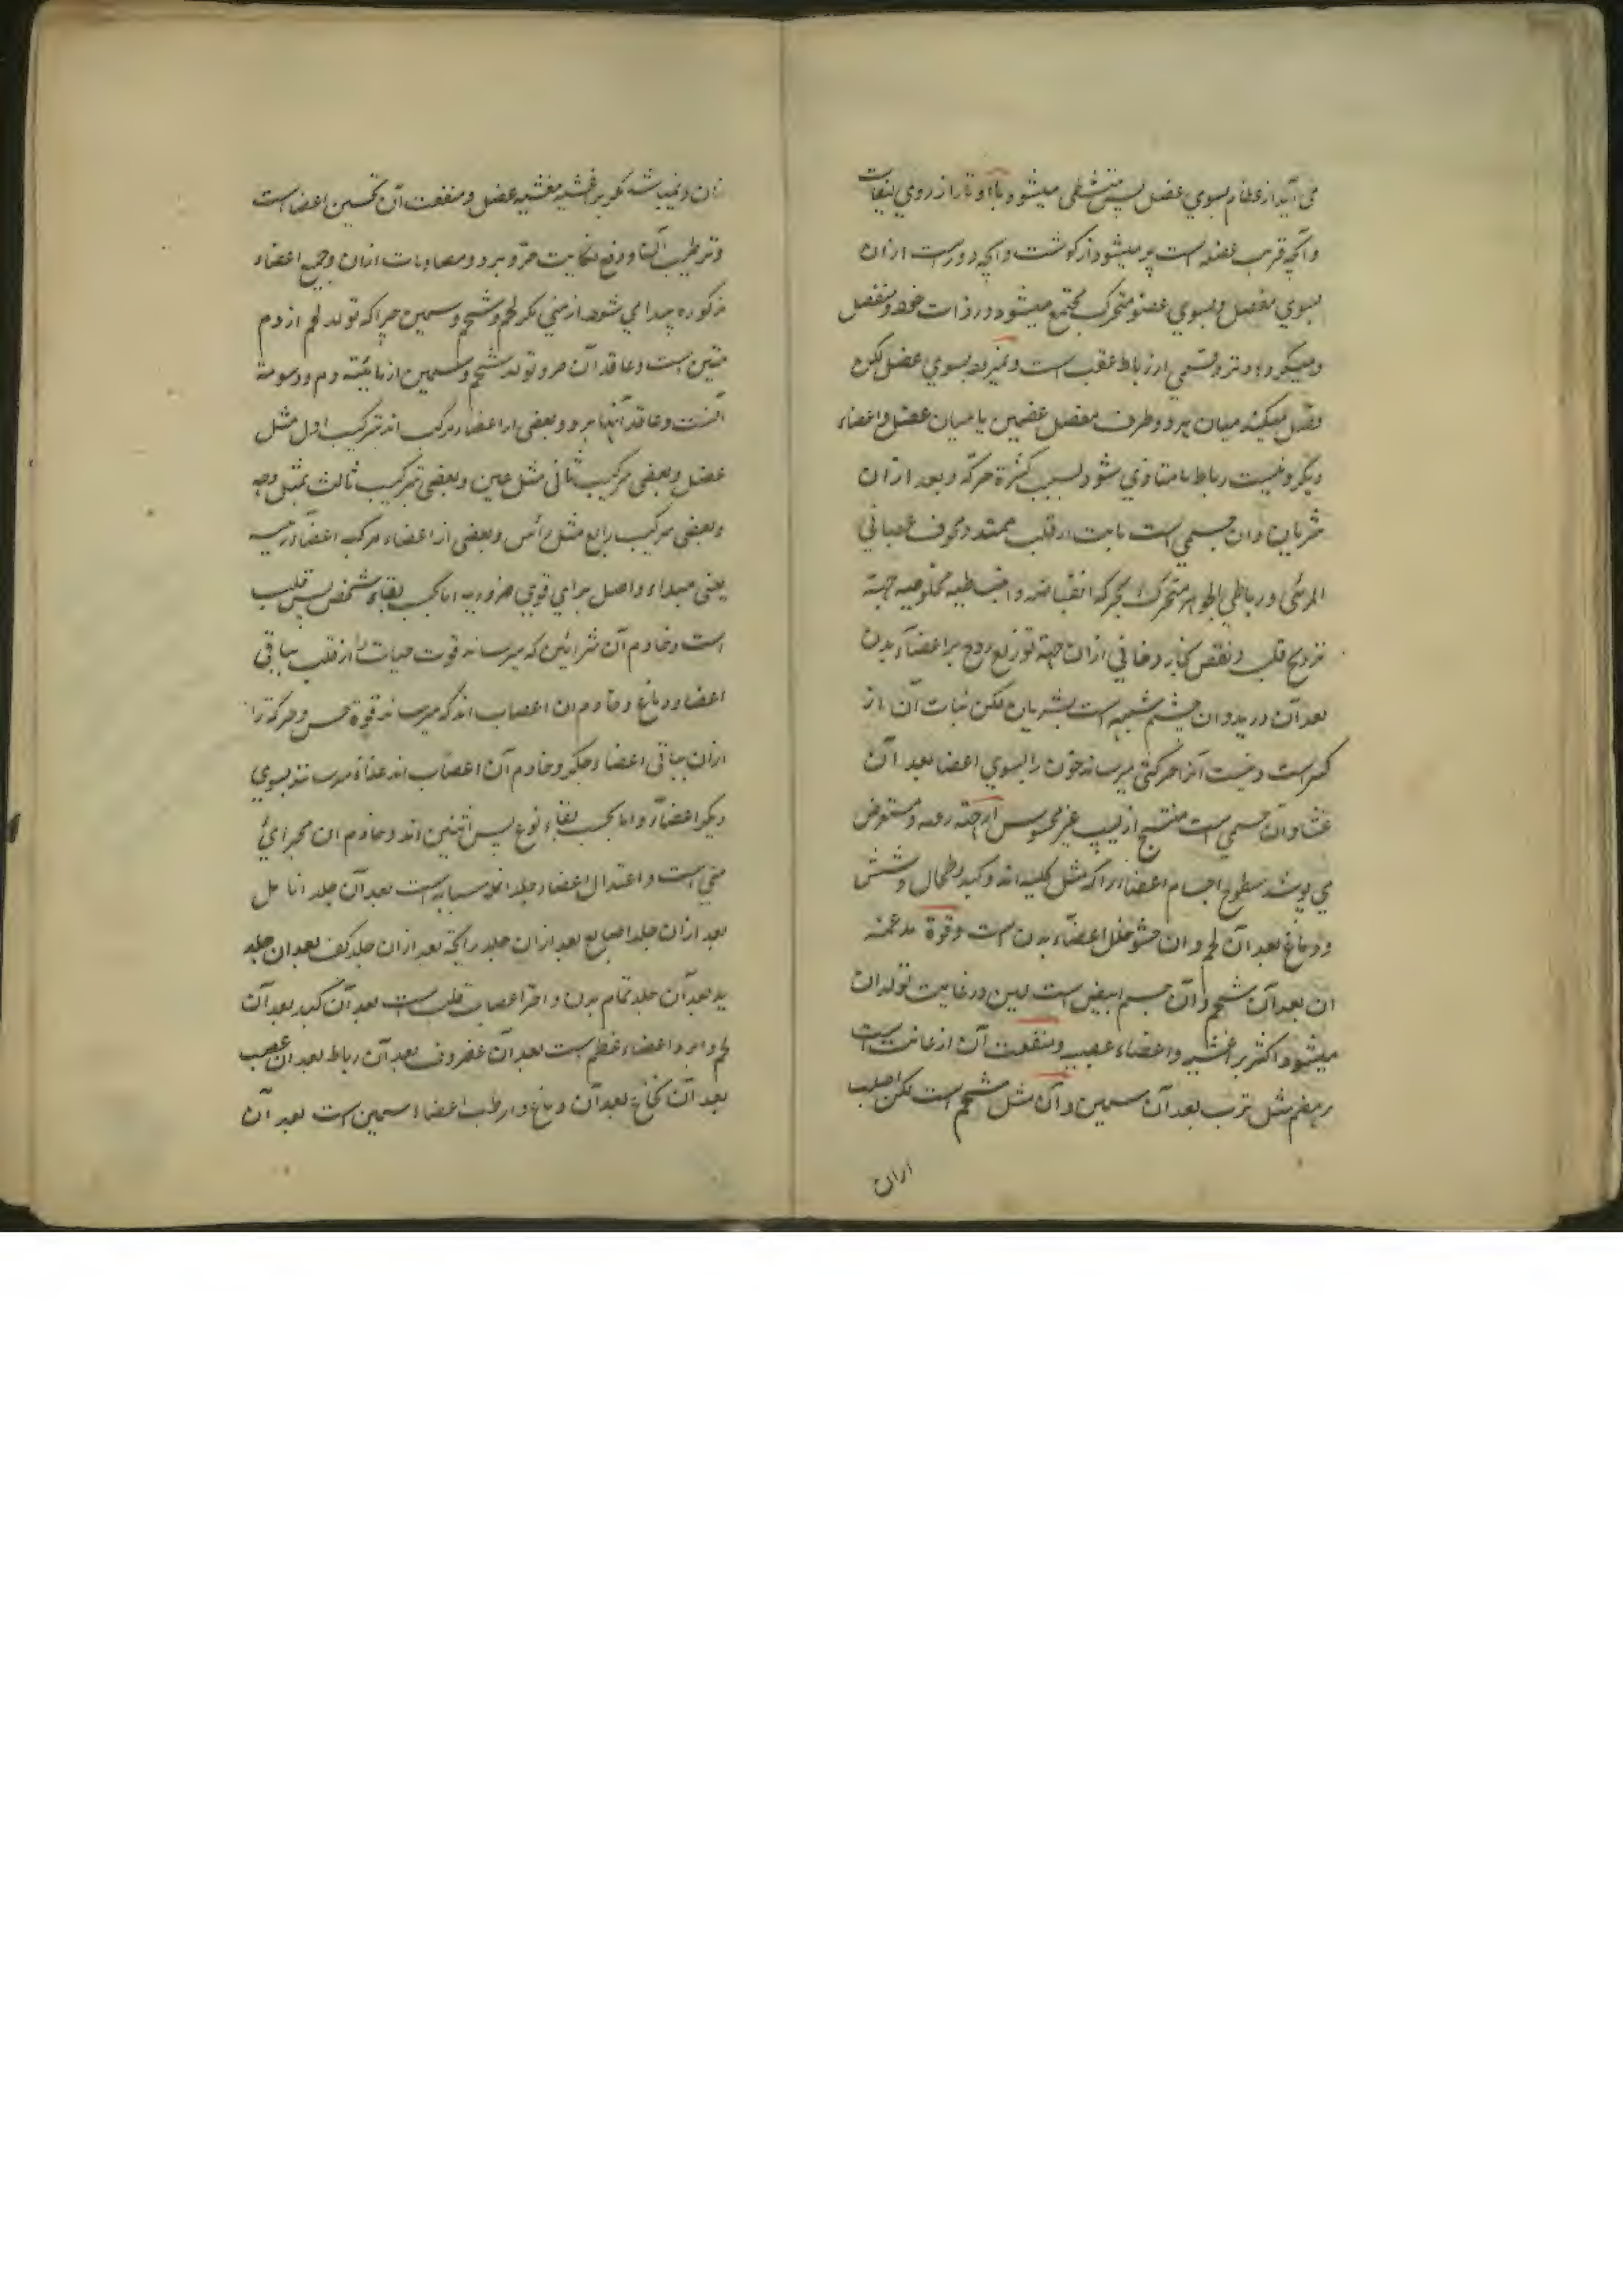 می آید از عظام بسوی عضل پس متشظی میشود با او تار از روی لیفات
و آنچه قریب عضله است پر میشود از گوشت و آنچه دور است ازان
بسوی مفصل و بسوی عضو متحرک مجتمع میشود در ذات خود و منفصل
و میگردد وتر و قسمی از رباط عقب است و نمیرود بسوی عضل لکن
وصل میکند میان هر دو طرف مفصل عضمین یا میان عضل و اعضاء
دیگر و نیست رباط را تا متاذی شود بسبب کثرة حرکة و بعد ازان
شریان و ان جسمی است نابت از قلب ممتد و مجوف عصبانی
المرئی و رباطی الجوهر متحرک بحرکة انقباضه و انبساطیه مخلوصیه جهة
ترویح قلب و نفض بخار دخانی ازان جهة توزیع روح بر اعضآء بدن
بعد آن ورید و ان جسم شبیه است بشریان لکن نبات آن از
کبد است و نیست آنرا حرکتی میرساند خون را بسوی اعضا بعد آن
غشا و آن جسمی است منتسج از لیف غیر محسوس و مستعرض
می پوشد سطوح اجسام اعضاء را که مثل کلیه اند و کبد و طحال و شش
و دماغ بعد آن لحم و ان حشو خلل اعضآء بدن است و قوة
ان بعد آن شحم و آن جسم ابیض است لین در غایت تولد ان
میشود اکثر بر اغشیه و اعضاء عصبیه و منفعت آن اعانت است
بر هضم مثل ثرب بعد آن سمین و آن مثل شحم است لکن اصلب
ازان
ازان و نمیباشد مگر بر اغشیه مغشیه عضل و منفعت آن تحسین اعضا است
و ترطیب آنها و دفع نکایت حر و برد و مصادمات ازان و جمیع اعضاء
مذکوره پیدا می شود از منی مگر لحم و شحم و سمین چرا که تولد لحم از دم
متین است و عاقد آن حر و تولد شحم و سمین از مائیته دم و دسومة
آنست و عاقد آنها برد و بعضی از اعضاء مرکب اند بترکیب اول مثل
عضل و بعضی بترکیب ثانی مثل عین و بعضی بترکیب ثالث مثل وجه
و بعضی بترکیب رابع مثل رأس و بعضی از اعضاء مرکبه اعضآء رئیسه
یعنی مبداء و اصل برای قوی ضروریه اما بحسب بقاء شخص پس قلب
است و خادم آن شرائین که میرساند قوت حیات را از قلب بباقی
اعضا و دماغ و خادم ان اعصاب اند که میرساند قوة حس و حرکة را
ازان بباقی اعضا و جگر و خادم آن اعصاب اند غذا میرسانند بسوی
دیگر اعضآء و اما بحسب بقاء نوع پس انثیین اند و خادم ان مجرای
منی است و اعتدال اعضاء جلد انمله سبابه است بعد آن جلد انامل
بعد ازان جلد اصابع بعد ازان جلد راحة بعد ازان جلد کف بعد ان جلد
ید بعد آن جلد تمام بدن و احر اعصاب قلب است بعد آن کبد بعد آن
لحم و ابرد اعضاء عظم است بعد آن غضروف بعد آن رباط بعد ان عصب
بعد آن نخاع بعد آن دماغ و ارطب اعضاء سمین است بعد آن